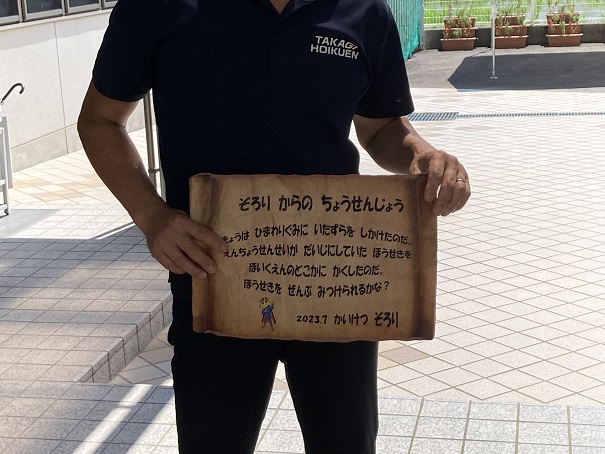 TAKAGI
HOIKUEN
ぞろり からの ちょうせんじょう
きょうは ひまわりぐみに いたずらを しかけたのだ。
えんちょうせんせいが だいじにしていた ほうせきを
ほいくえんのどこかに かくしたのだ。
ほうせきを ぜんぶ みつけられるかな?
2023.7 かいけつ ぞろり